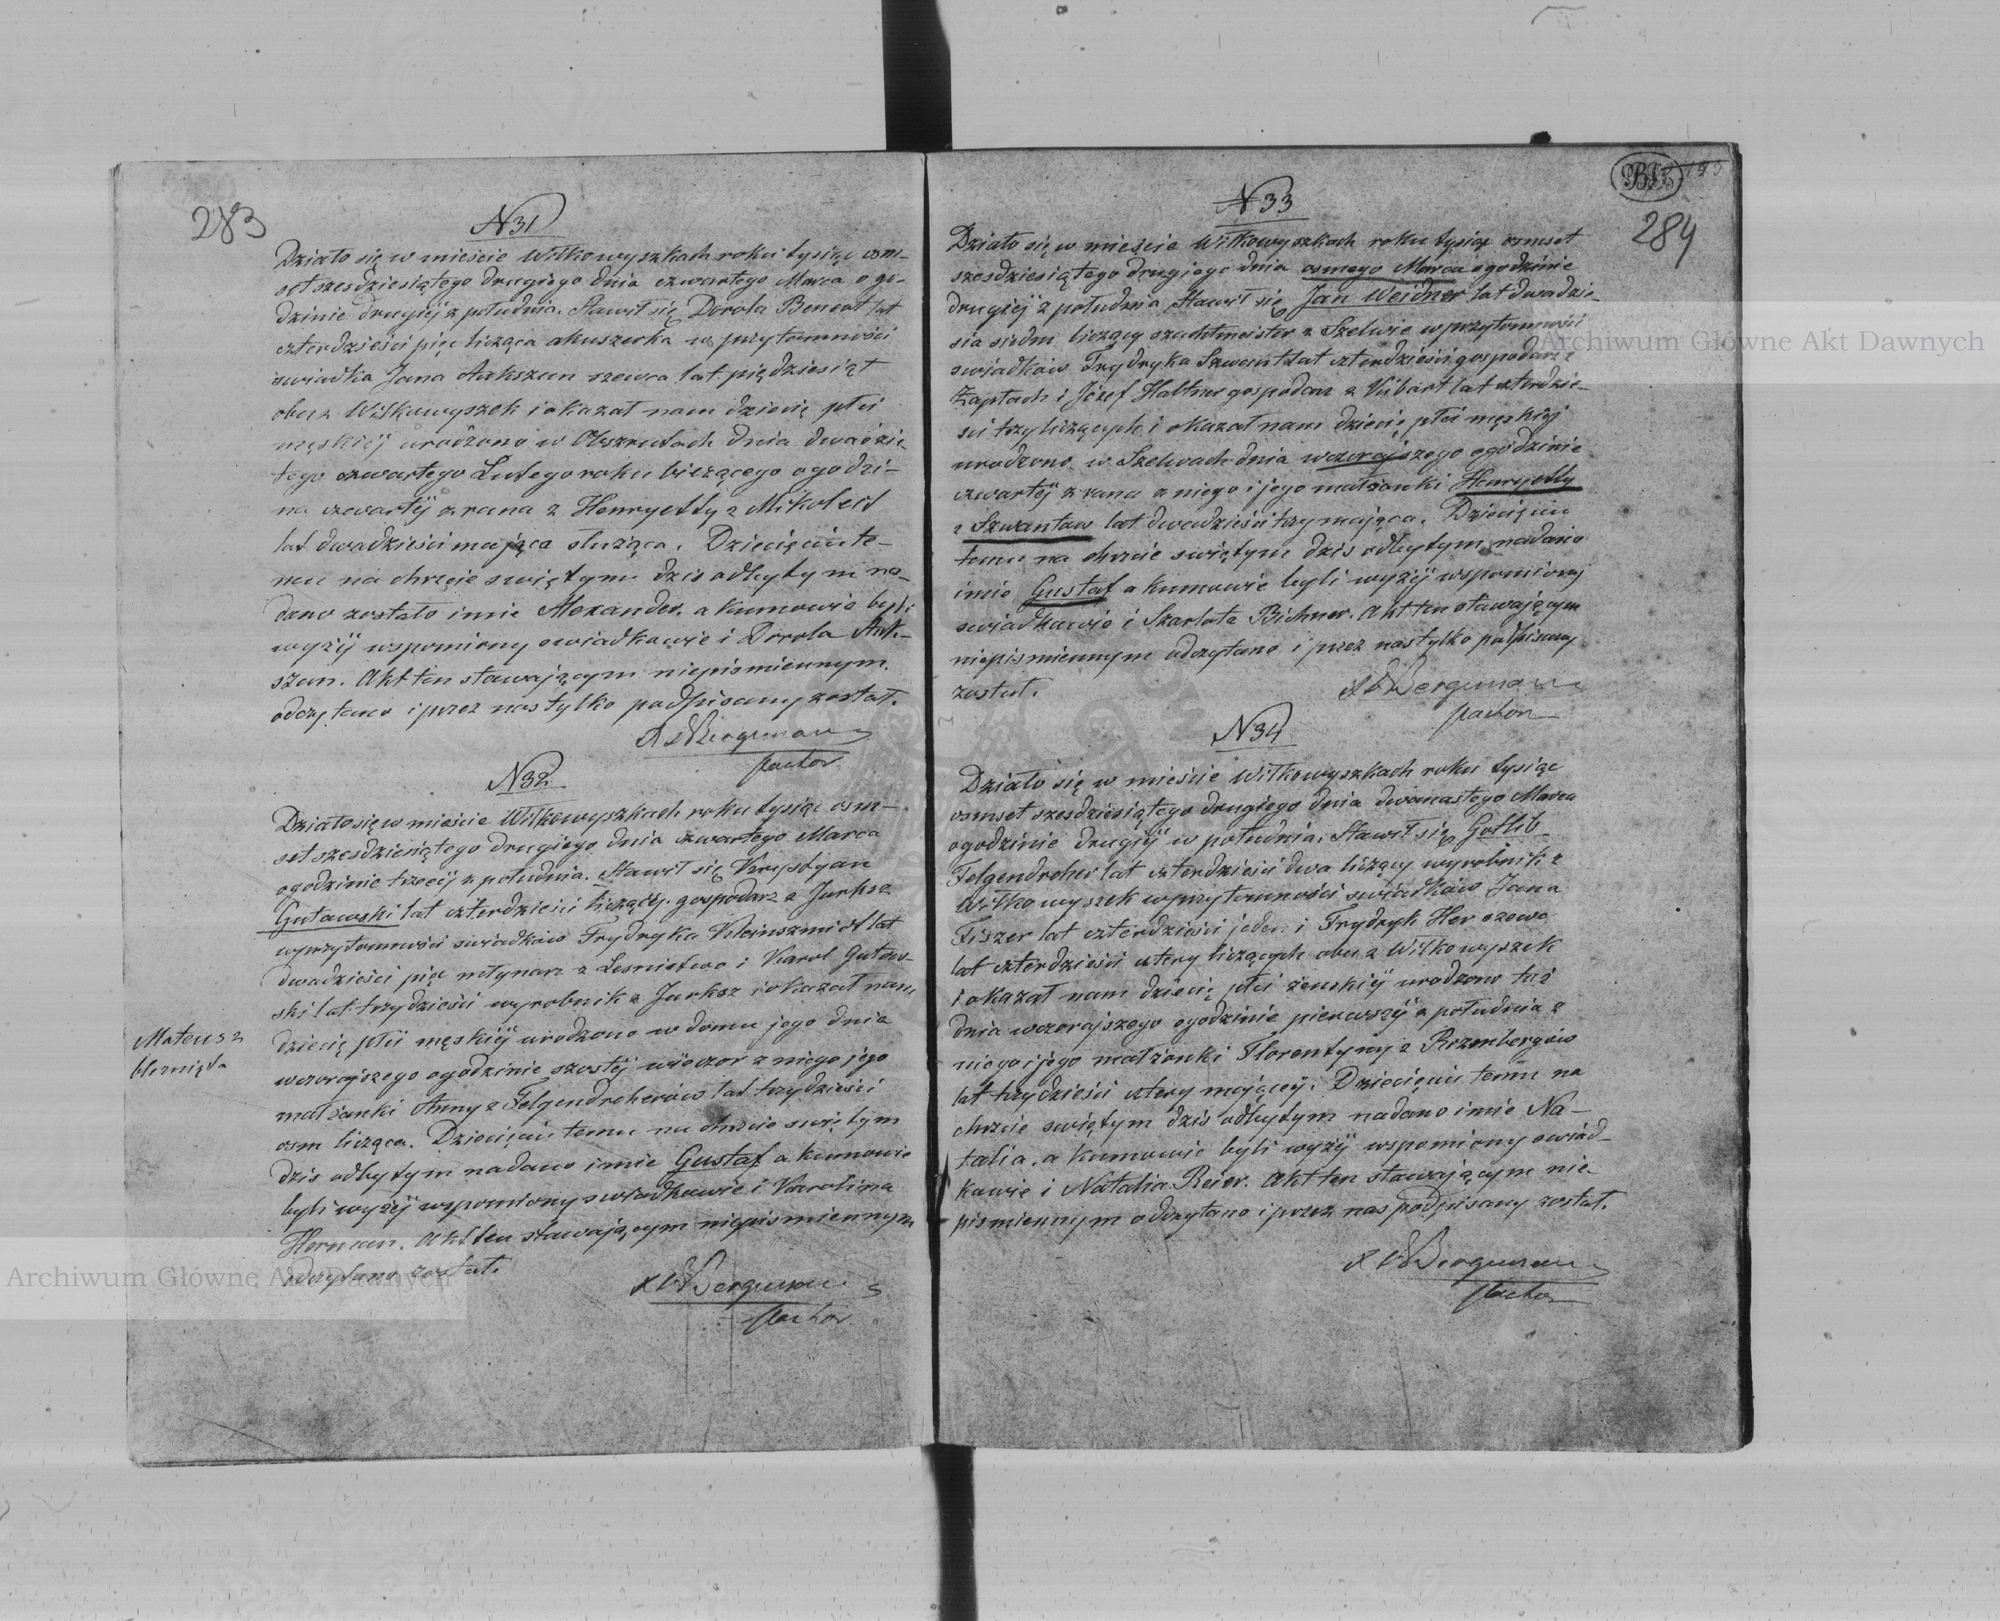 283
N 31
Działo się w mieście Wiłkowyszkach roku tysiąc osm-
set szesdziesiątego drugiego dnia czwartego Marca o go-
dzinie drugiéj z południa. Stawił się Dorota Benert lat
czterdzieści pięc licząca akuszerka w przytomności
swiadka Jana Ankszun szewca lat piędziesiąt
obu z Wiłkowyszek i okazał nam dziecię płci
męskiéj urodzone w Obszrutach dnia dwadzie
tego czwartego Lutego roku bieżącego o godzi-
na czwartéj z rana z Henryetty z Mikoleit
lat dwadzieścia mająca służąca. Dziecięciu te-
mu na chrzcie swiętym dzis odbytym na-
dano zostało imie Alexander. a kumowie byli
wyżéj wspomiony swiadkowie i Dorota Ank-
szun. Akt ten stawającym niepismiennym
odczytano i przez nas tylko podpisany został.
Bergman
pastor
N 32
Działo się w mieście Wiłkowyszkach roku tysiąc osm-
set szesdziesiątego drugiego dnia czwartego Marca
o godzinie trzeciéj z południa. Stawił się Krystyan
Gutowski lat czterdzieści liczący. gospodarz z Jurksz
w przytomności swiadków Frydryka Kleinszmidt lat
dwadzieści pięc młynarz z Lesnistwa i Karol Gutow-
ski lat trzydzieści wyrobnik z Jurksz i okazał nam
dziecię płci męskiéj urodzone w domu jego dnia
wczorajszego o godzinie szostéj wieczor z niego jego
małżonki Anny z Felgendreherów lat trzydzieści
osm licząca. Dziecięciu temu na chrzcie swiętym
dzis odbytym nadano imie Gustaf a kumowie
byli wyżéj wspomiony swiadkowie i Karolina
Herman. Akt ten stawającym niepismiennym
odczytano został.
Bergman
pastor
Mateusz
bliznięta
284
N 33
Działo się w mieście Wiłkowyszkach roku tysiąc osmset
szesdziesiątego drugiego dnia osmego Marca o godzinie
drugiéj z południa Stawił się Jan Weidner lat dwadzie-
scia siedm liczący szachtmeister z Szelwie w przytomności
swiadków Frydryka Szwant lat czterdzieści gospodarz z
Zaptach i Józef Haltner gospodarz z Wibart lat czterdzie-
sci trzy liczących i okazał nam dziecię płci męskiéj
urodzone w Szelwach dnia wczorajszego o godzinie
czwartéj z rana z niego i jego małżonki Henryetty
z Szwantow lat dwadzieści trzy mająca. Dziecięciu
temu na chrzcie swiętym dzis odbytym nadano
imie Gustaf a kumowie byli wyżéj wspomiony
swiadkowie i Szarlota Bichner. Akt ten stawającym
niepismiennym odczytano i przez nas tylko podpisany
został.
Bergman
pastor
N 34
Działo się w mieście Wiłkowyszkach roku tysiąc
osmset szesdziesiątego drugiego dnia dwunastego Marca
o godzinie drugiéj w południa. Stawił się Gotlib
Felgendreher lat czterdzieści dwa liczący wyrobnik z
Wiłkowyszek w przytomności swiadków Jana
Fiszer lat czterdzieści jeden i Frydryk Her szewc
lat czterdzieści cztery liczących obu z Wiłkowyszek
i okazał nam dziecię płci żenskiéj urodzone tuż
dnia wczorajszego o godzinie pierwszéj z południa z
niego i jego małżonki Florentyny z Rozenbergów
lat trzydzieści cztery mającéj. Dziecięciu temu na
chrzcie swiętym dzis odbytym nadano imie Na-
talia. a kumowie byli wyżéj wspomiony swiad-
kowie i Natalia Reier. Akt ten stawającym nie
pismiennym odczytano i przez nas podpisany został.
Bergman
pastor
Archiwum Główne Akt Dawnych
Archiwum Główne Akt Dawnych